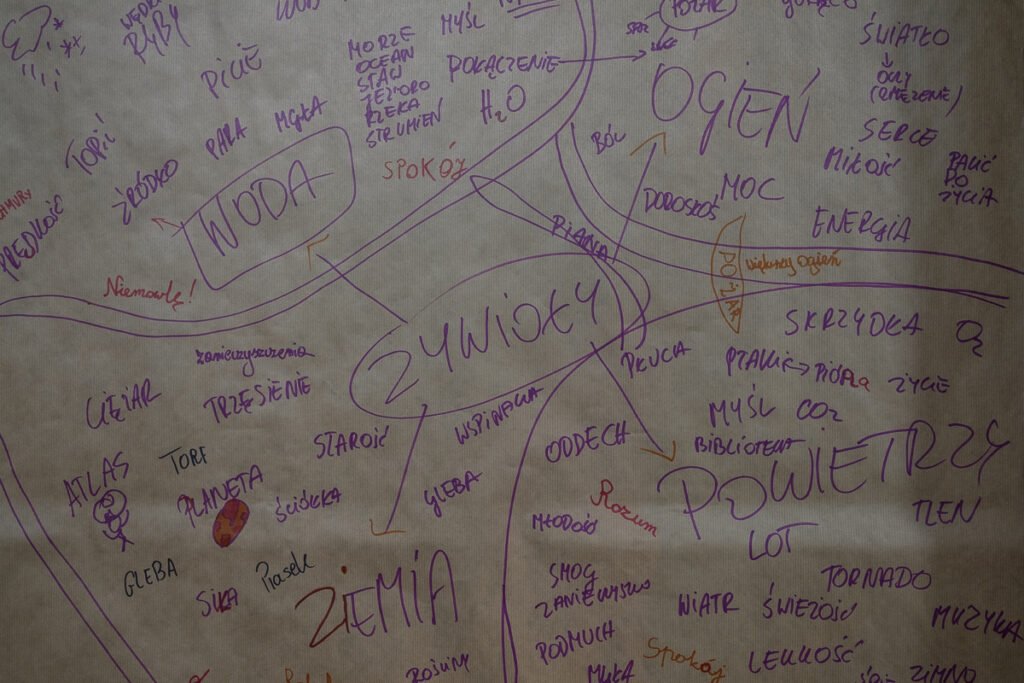 RYBY
PICIE
MORZE
OCEAN
STAW
JEZIORO
RZEKA
STRUMIEŃ
MYŚL
POŁĄCZENIE
H₂O
TOPIĆ
PARA
MGŁA
ŹRÓDŁO
PRĘDKOŚĆ
WODA
SPOKÓJ
Niemowlę!
POŻAR
OGIEŃ
ŚWIATŁO
OCZY
SERCE
MIŁOŚĆ
PALIĆ
PO
ŻYCIA
BÓL
MOC
ENERGIA
PIANA
POŻAR
większy ogień
ŻYWIOŁY
zanieczyszczenia
CIĘŻAR
TRZĘSIENIE
STAROŚĆ
WSPINACZKA
ATLAS
TORF
PLANETA
ŚCIÓŁKA
GLEBA
GLEBA
SIŁA
Piasek
ZIEMIA
ROŚLINY
SKRZYDŁA
O₂
PŁUCA
PTAKI → PIÓRA
ŻYCIE
MYŚL
CO₂
ODDECH
BIBLIOTEKA
POWIETRZY
Rozum
TLEN
MŁODOŚĆ
LOT
SMOG
TORNADO
WIATR
ŚWIEŻOŚĆ
MUZYKA
PODMUCH
Spokój
LEKKOŚĆ
MGŁA
ZIMNO